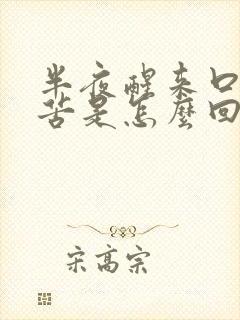 半夜醒来口
苦是怎麼回
宋高宗